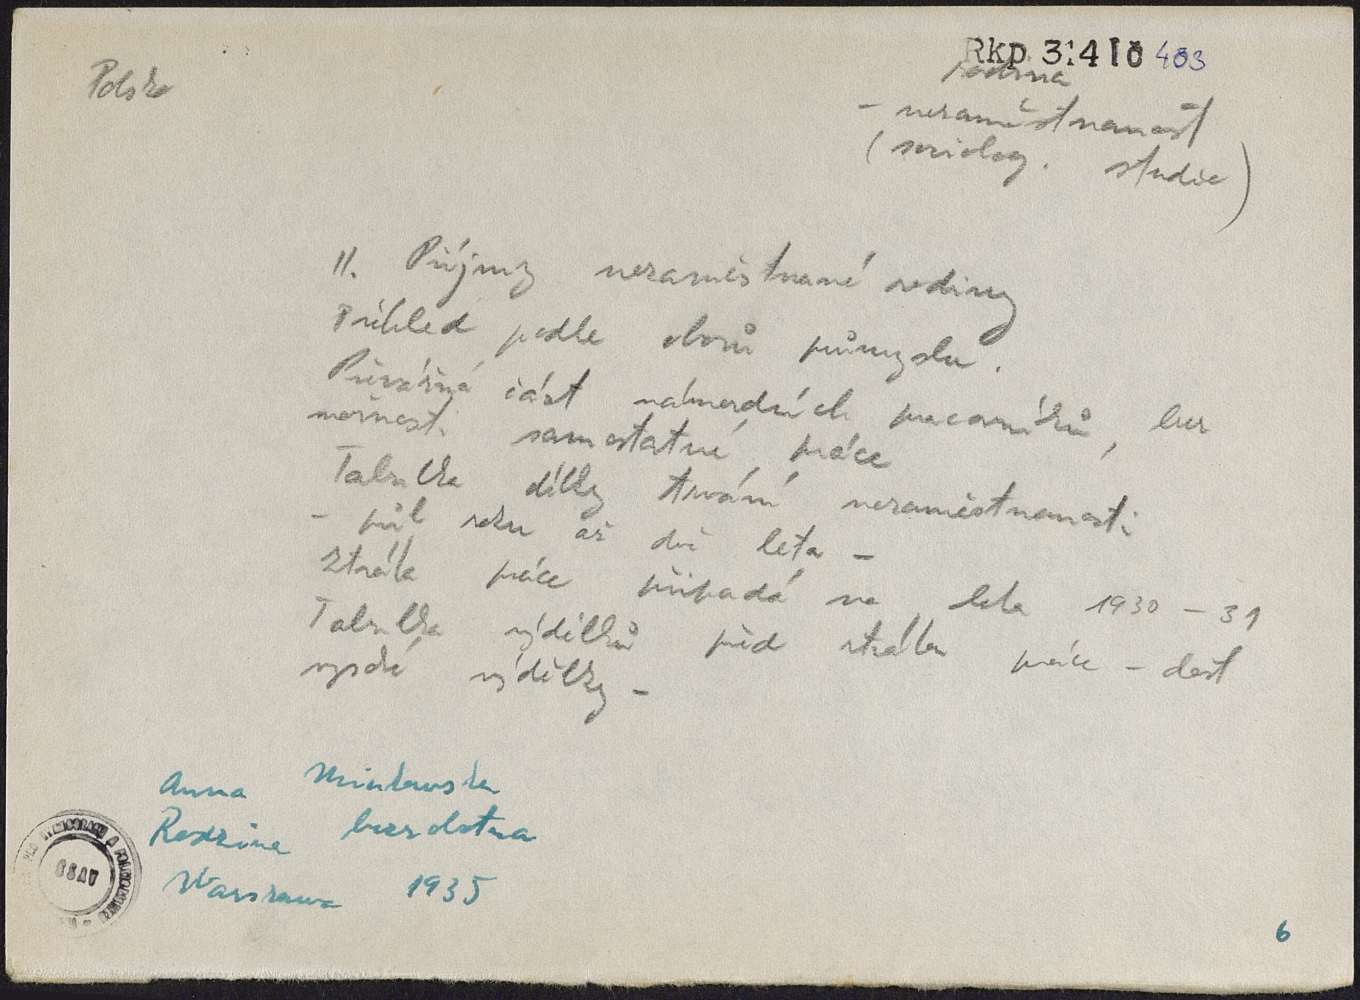 Polsko
Rkp 31410 483
rodina
- nezaměstnanost
(sociolog. studie)
II. Příjmy nezaměstnané rodiny
Přehled podle oborů průmyslu.
Převážná část námezdních pracovníků, bez
možnosti samostatné práce
Tabulka délky trvání nezaměstnanosti
- půl roku až dvě léta -
Ztráta práce připadá na léta 1930 - 31
Tabulka výdělků před ztrátou práce - dost
vysoké výdělky -
Anna Minkowska
Rodzina bezrobotna
Warszawa 1935
ČSAV
6